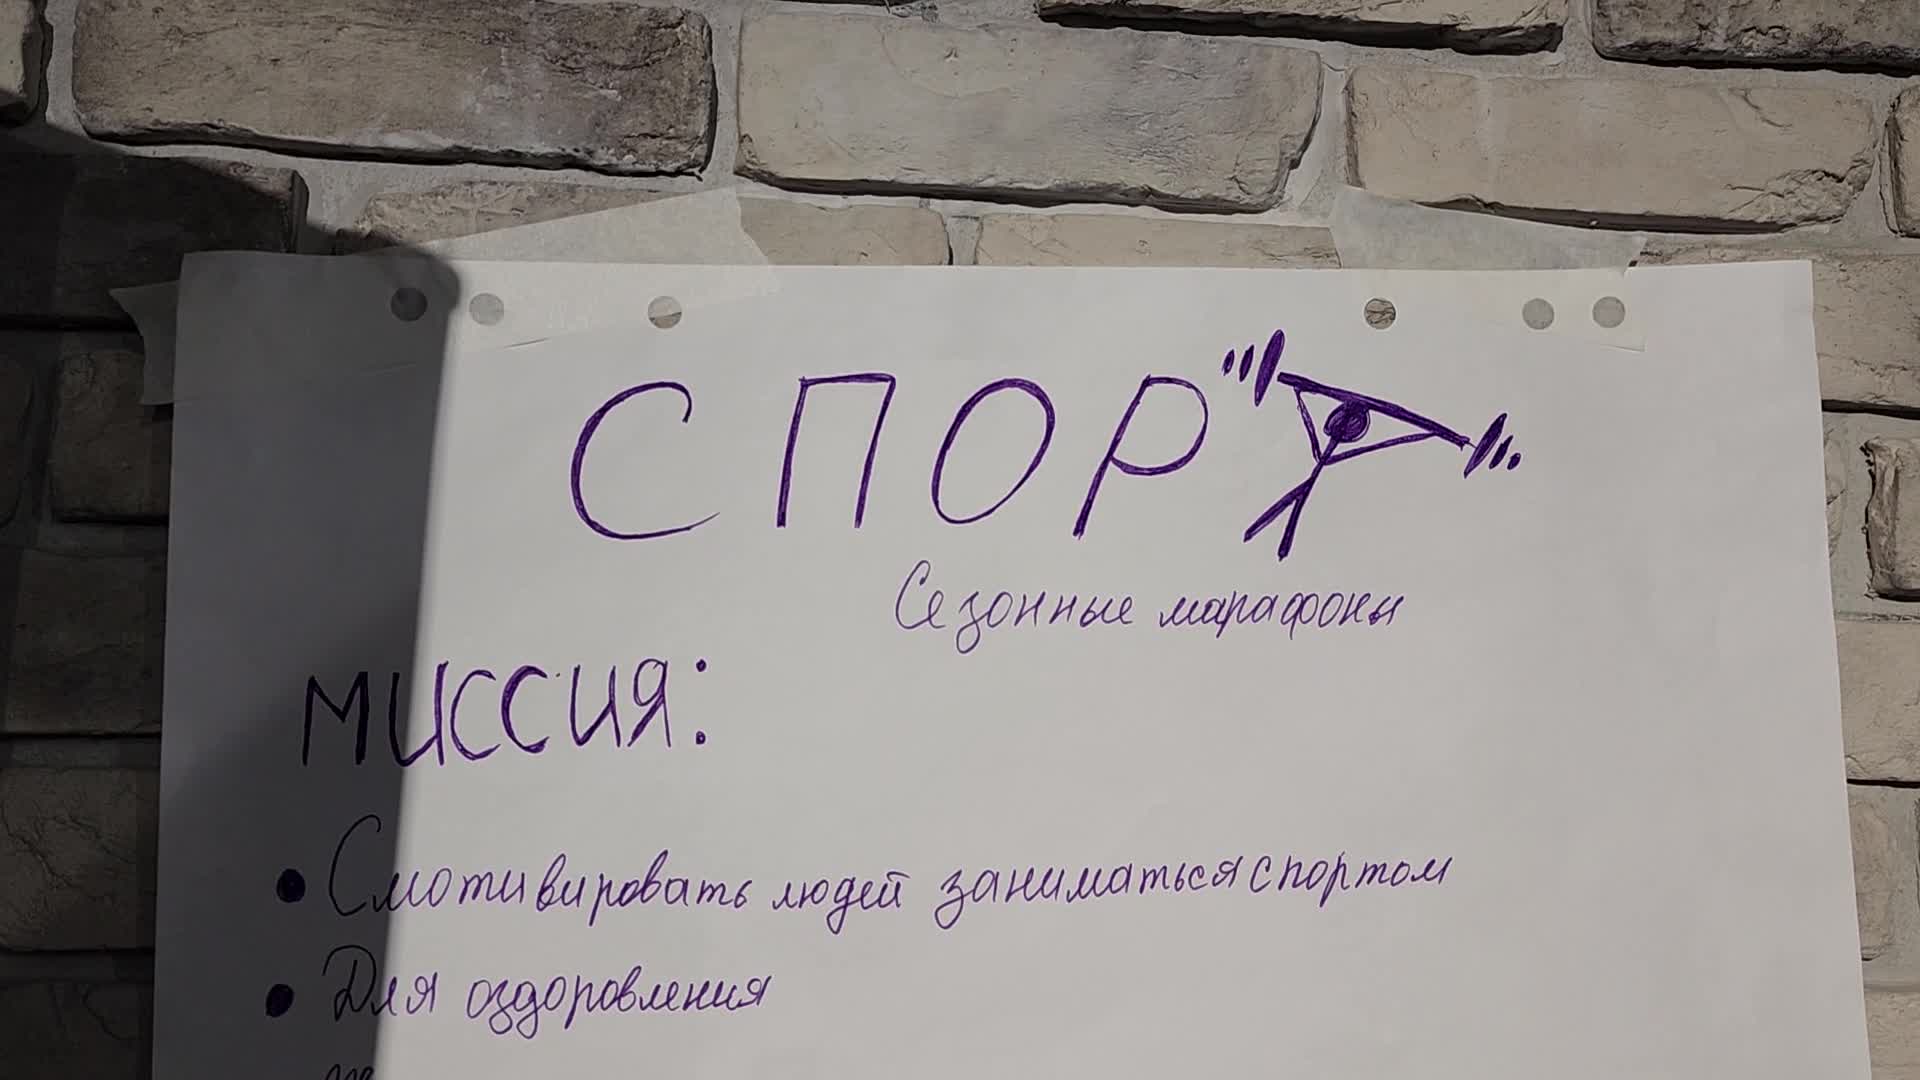 СПОРТ
Сезонные марафоны
МИССИЯ:
• Смотивировать людей заниматься спортом
• Для оздоровления